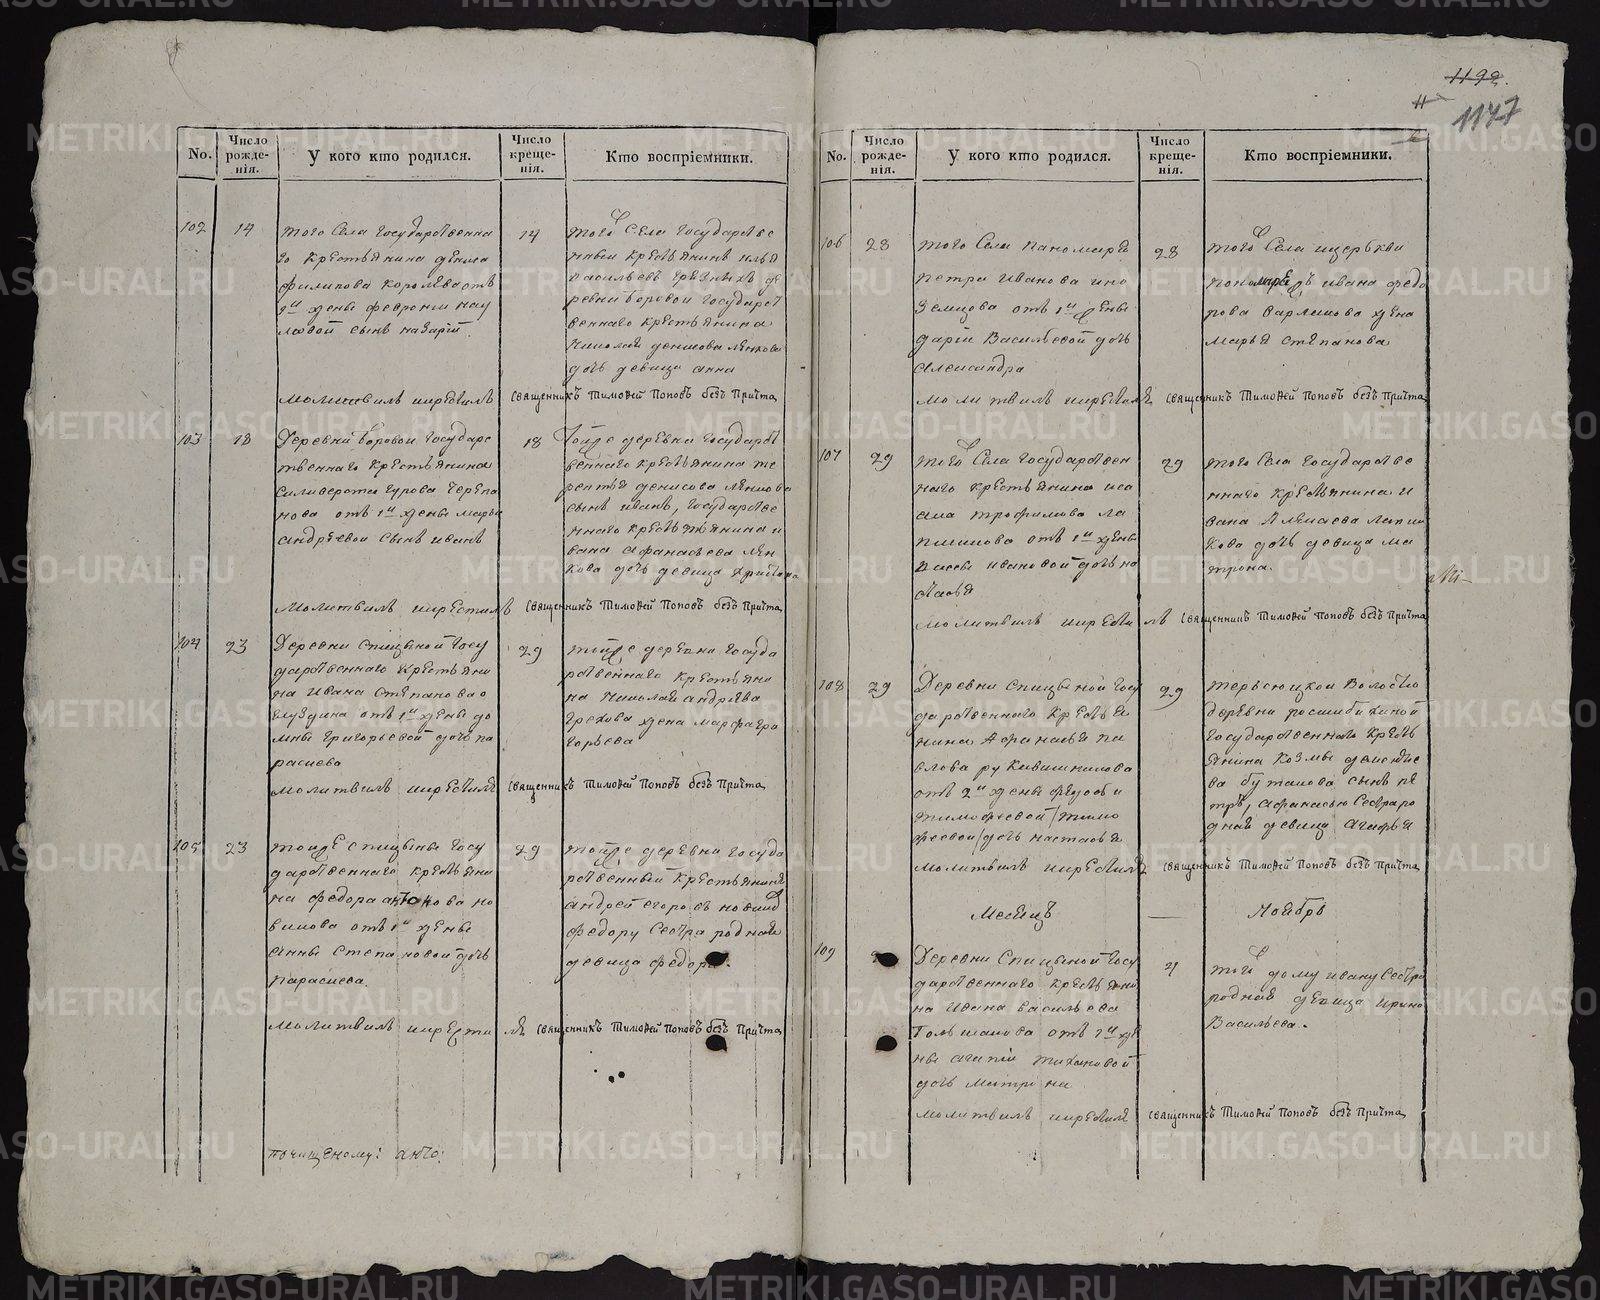 1199.
1147
No.
Число рожде-нія.
У кого кто родился.
Число креще-нія.
Кто воспріемники.
102
14
того Села государственна
го крестьянина дениса
филипова королева отъ
1й жены февронии нау
мовой сынъ назарій
14
того Села государстве
нной крестьянинъ илья
васильевъ де
ревни боровой государст
веннаго крестьянина
николая денисова
дочь девица анна
молитвилъ икрестилъ священникъ Тимоѳей Поповъ безъ Причта
103
18
Деревни боровой государс
твеннаго крестьянина
селиверста гурова черепа
нова отъ 1й жены марьи
андреевой сынъ иванъ
18
тойже деревни государст
веннаго крестьянина те
рентья денисова
сынъ иванъ, государстве
ннаго крестьянина и
вана афанасьева
дочь девица
молитвилъ икрестилъ священникъ Тимоѳей Поповъ безъ Причта
104
23
Деревни спицыной госу
дарственнаго крестьяни
на ивана степанова
отъ 1й жены до
мны григорьевой дочь па
раскева
29
тойже деревни госуда
рственнаго крестьяни
на николая андреева
грехова жена марфа гри
горьева
молитвилъ икрестилъ священникъ Тимоѳей Поповъ безъ Причта
105
23
тойже спицыны госу
дарственнаго крестьяни
на федора антонова но
викова отъ 1й жены
анны степановой дочь
параскева.
29
тойже деревни госуда
рственный крестьянинъ
андрей егоровъ новиковъ
федору сестра родная
девица федора.
молитвилъ икрестилъ священникъ Тимоѳей Поповъ безъ Причта
почищеному: анто:
No.
Число рожде-нія.
У кого кто родился.
Число креще-нія.
Кто воспріемники.
106
28
того Села паномаря
петра иванова ино
земцова отъ 1й жены
дарьи васильевой дочь
александра
28
того Села ицеркви
пономаря ивана федо
рова варлакова жена
марья степанова
молитвилъ икрестилъ священникъ Тимоѳей Поповъ безъ Причта
107
29
того Села государствен
наго крестьянина иса
ака трофимова ла
пшикова отъ 1й жены
ивановой дочь на
стасья
29
того Села государстве
ннаго крестьянина и
вана
дочь девица ма
трона.
молитвилъ икрестилъ священникъ Тимоѳей Поповъ безъ Причта
108
29
Деревни спицыной госу
дарственнаго крестья
нина Афанасья па
влова рукавишникова
отъ 2й жены федосьи
тимофеевой /тимо
феевой/ дочь настасья
29
терсюцкой волости
деревни
государственнаго кресть
янина козмы
ва бутакова сынъ пе
тръ, афанасью сестра ро
дная девица агафья
молитвилъ икрестилъ священникъ Тимоѳей Поповъ безъ Причта
Месяцъ — Ноябрь
109
Деревни спицыной госу
дарственнаго крестьяни
на ивана васильева
отъ 1й же
ны агапіи тихановой
дочь матрона
4
того дому ивану сестра
родная девица ирина
васильева.
молитвилъ икрестилъ священникъ Тимоѳей Поповъ безъ Причта
METRIKI.GASO-URAL.RU